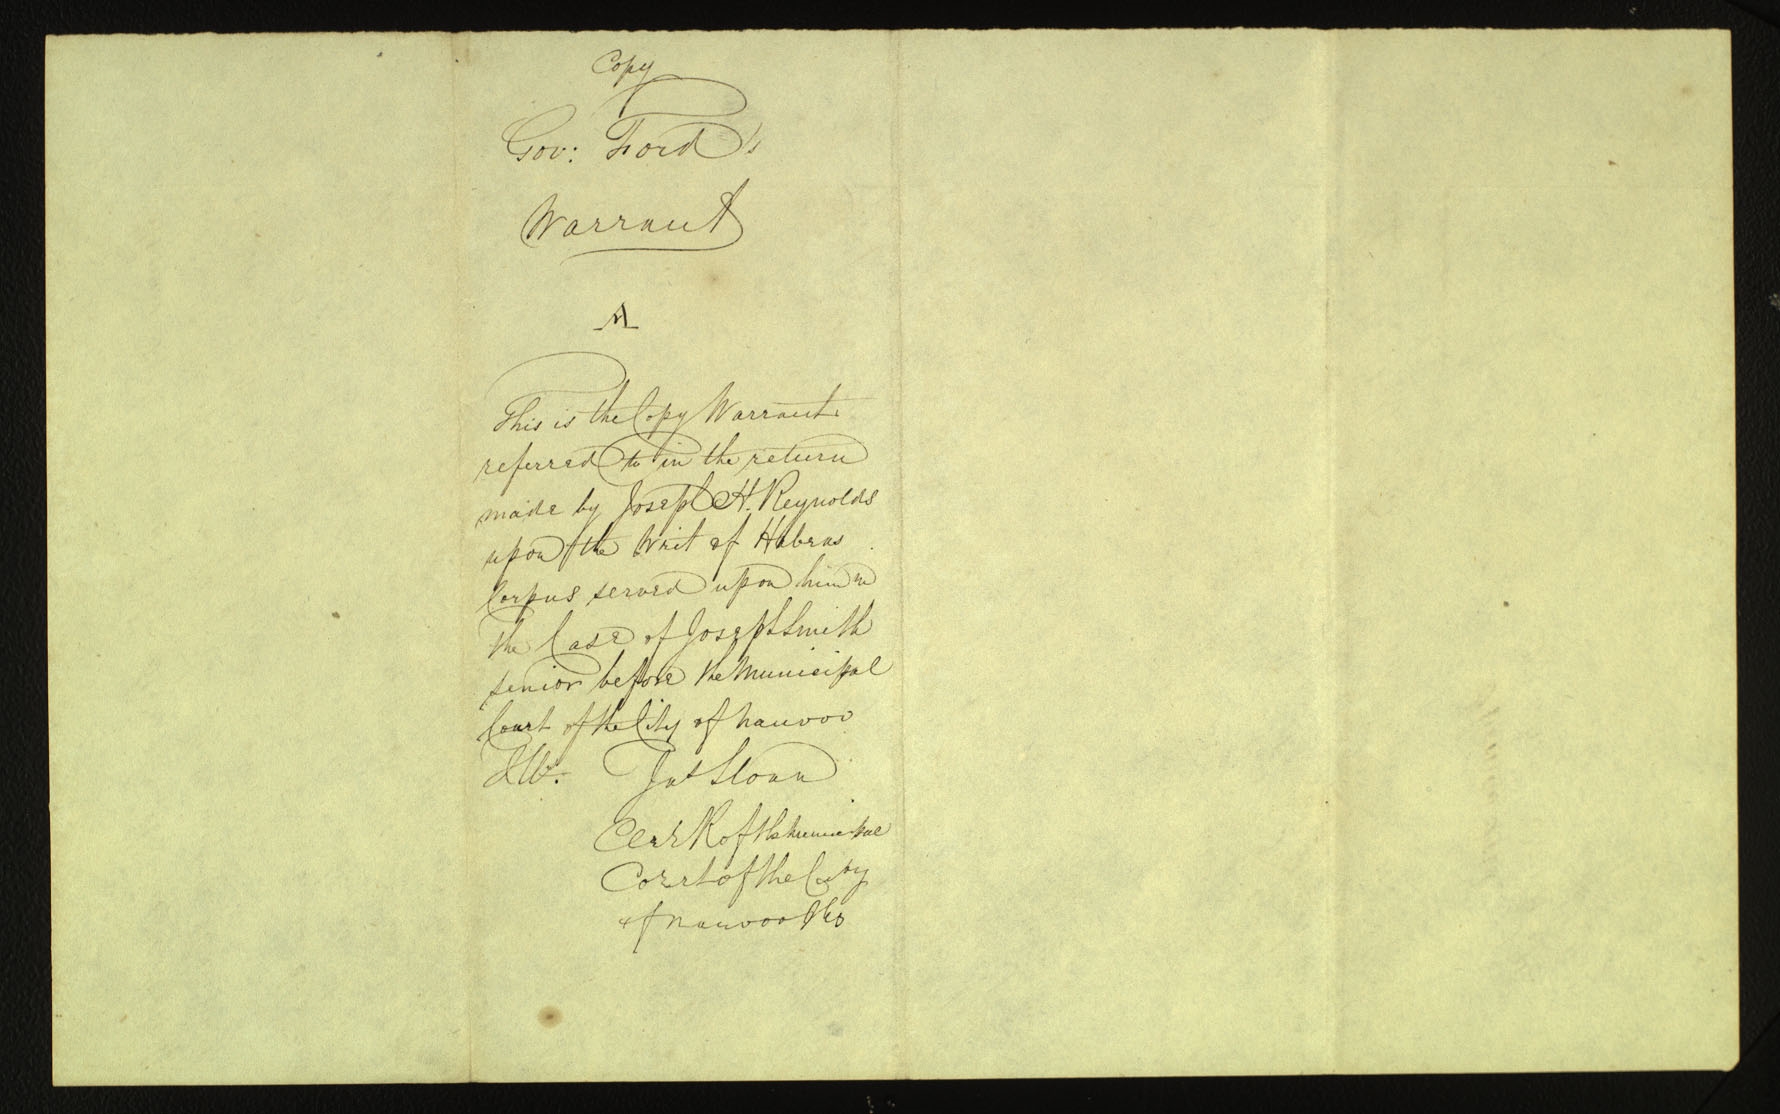 Copy
Gov: Ford's
Warrant
A
This is the Copy Warrant
referred to in the return
made by Joseph H. Reynolds
upon the Writ of Habeas
Corpus served upon him in
the Case of Joseph Smith
senior before the Municipal
Court of the City of Nauvoo
Ill.  Jas Sloan
Clerk of the Municipal
Corrt of the City
of Nauvoo